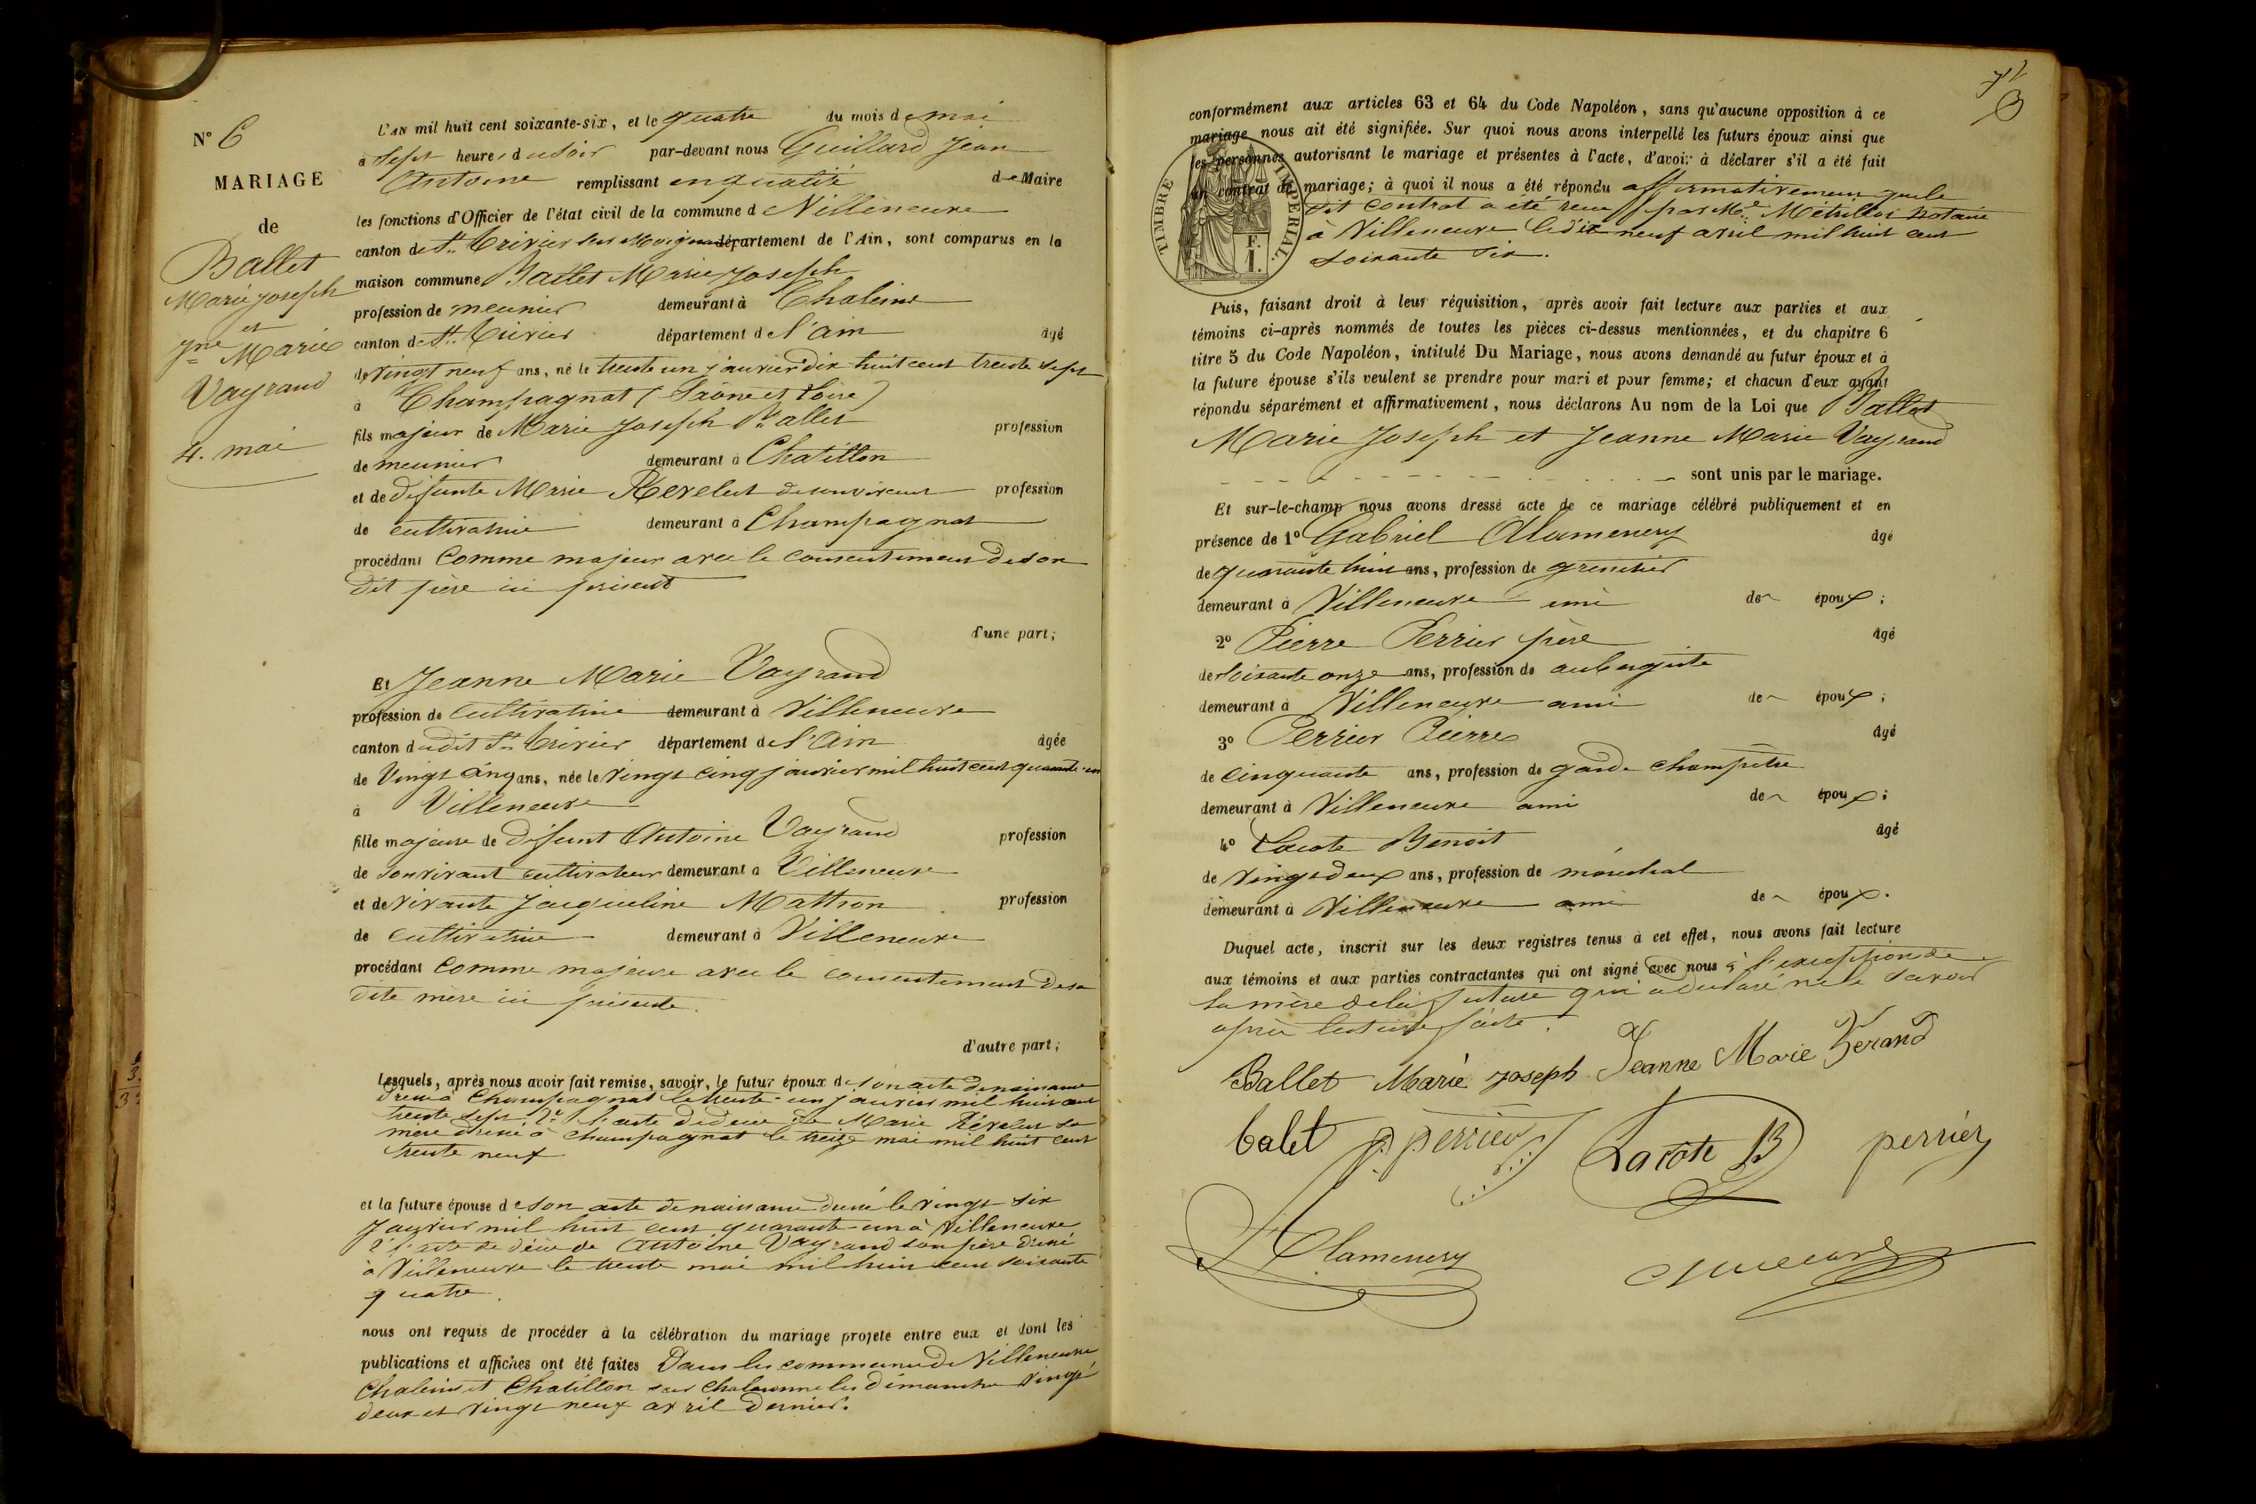 N° 6
MARIAGE
de
Ballet
Marie Joseph
et
Jne Marie
Vayrand
4. mai
L'AN mil huit cent soixante-six, et le quatre du mois de mai
à sept heures du soir par-devant nous Guillard Jean
Antoine remplissant en qualité de Maire
les fonctions d'Officier de l'état civil de la commune de Villeneuve
canton de St. Trivier sur Moignans département de l'Ain, sont comparus en la
maison commune Ballet Marie Joseph
profession de meunier demeurant à Chaleins
canton de St. Trivier département de l'ain âgé
de vingt neuf ans, né le trente un janvier dix huit cent trente sept
à Champagnat (Saône et Loire)
fils majeur de Marie Joseph Ballet profession
de meunier demeurant à Chatillon
et de défunte Marie Revelut de son vivant profession
de cultivatrice demeurant à Champagnat
procédant Comme majeur avec le consentement de son
dit père ici présent
d'une part;
Et Jeanne Marie Vayrand
profession de cultivatrice demeurant à Villeneuve
canton dudit St. Trivier département de l'Ain âgée
de Vingt cinq ans, née le vingt cinq janvier mil huit cent quarante-un
à Villeneuve
fille majeure de défunt Antoine Vayrand profession
de son vivant cultivateur demeurant à Villeneuve
et de vivante Jacqueline Mathon profession
de cultivatrice demeurant à Villeneuve
procédant Comme majeure avec le consentement de sa
dite mère ici présente.
d'autre part;
Lesquels, après nous avoir fait remise, savoir, le futur époux de son acte de naissance
dressé à Champagnat le trente-un janvier mil huit cent
trente sept 2° l'acte de décès de Marie Révelut sa
mère dressé à Champagnat le treize mai mil huit cent
trente neuf
et la future épouse de son acte de naissance dressé le vingt six
Janvier mil huit cent quarante-un à Villeneuve
2° l'acte de décès de Antoine Vayrand son père dressé
à Villeneuve le trente mai mil huit cent soixante
quatre.
nous ont requis de procéder à la célébration du mariage projeté entre eux et dont les
publications et affiches ont été faites Dans les communes de Villeneuve
Chaleins et Chatillon sur Chalaronne les dimanches vingt
deux et vingt neuf avril dernier.
3
conformément aux articles 63 et 64 du Code Napoléon, sans qu'aucune opposition à ce
mariage nous ait été signifiée. Sur quoi nous avons interpellé les futurs époux ainsi que
les personnes autorisant le mariage et présentes à l'acte, d'avoir à déclarer s'il a été fait
un contrat de mariage; à quoi il nous a été répondu affirmativement que le
dit contrat a été reçu par Me. Notaire
à Villeneuve le dix neuf avril mil huit cent
soixante six.
TIMBRE IMPERIAL.
F.
1.
Puis, faisant droit à leur réquisition, après avoir fait lecture aux parties et aux
témoins ci-après nommés de toutes les pièces ci-dessus mentionnées, et du chapitre 6
titre 5 du Code Napoléon, intitulé Du Mariage, nous avons demandé au futur époux et à
la future épouse s'ils veulent se prendre pour mari et pour femme; et chacun d'eux ayant
répondu séparément et affirmativement, nous déclarons Au nom de la Loi que Ballet
Marie Joseph et Jeanne Marie Vayrand
sont unis par le mariage.
Et sur-le-champ nous avons dressé acte de ce mariage célébré publiquement et en
présence de 1° Gabriel Clamenery âgé
de quarante huit ans, profession de
demeurant à Villeneuve ami de époux;
2° Pierre Perrier père âgé
de soixante onze ans, profession de aubergiste
demeurant à Villeneuve ami de époux;
3° Perrier Pierre âgé
de cinquante ans, profession de garde champêtre
demeurant à Villeneuve ami de époux;
4° Lacote Benoit âgé
de vingt deux ans, profession de maréchal
demeurant à Villeneuve ami de époux.
Duquel acte, inscrit sur les deux registres tenus à cet effet, nous avons fait lecture
aux témoins et aux parties contractantes qui ont signé avec nous à l'exception de
la mère de la future qui a déclaré ne le savoir
après lecture faite.
Ballet Marie joseph Jeanne Marie Verand
balet p perrier Lacôte B perrier
Clamenery